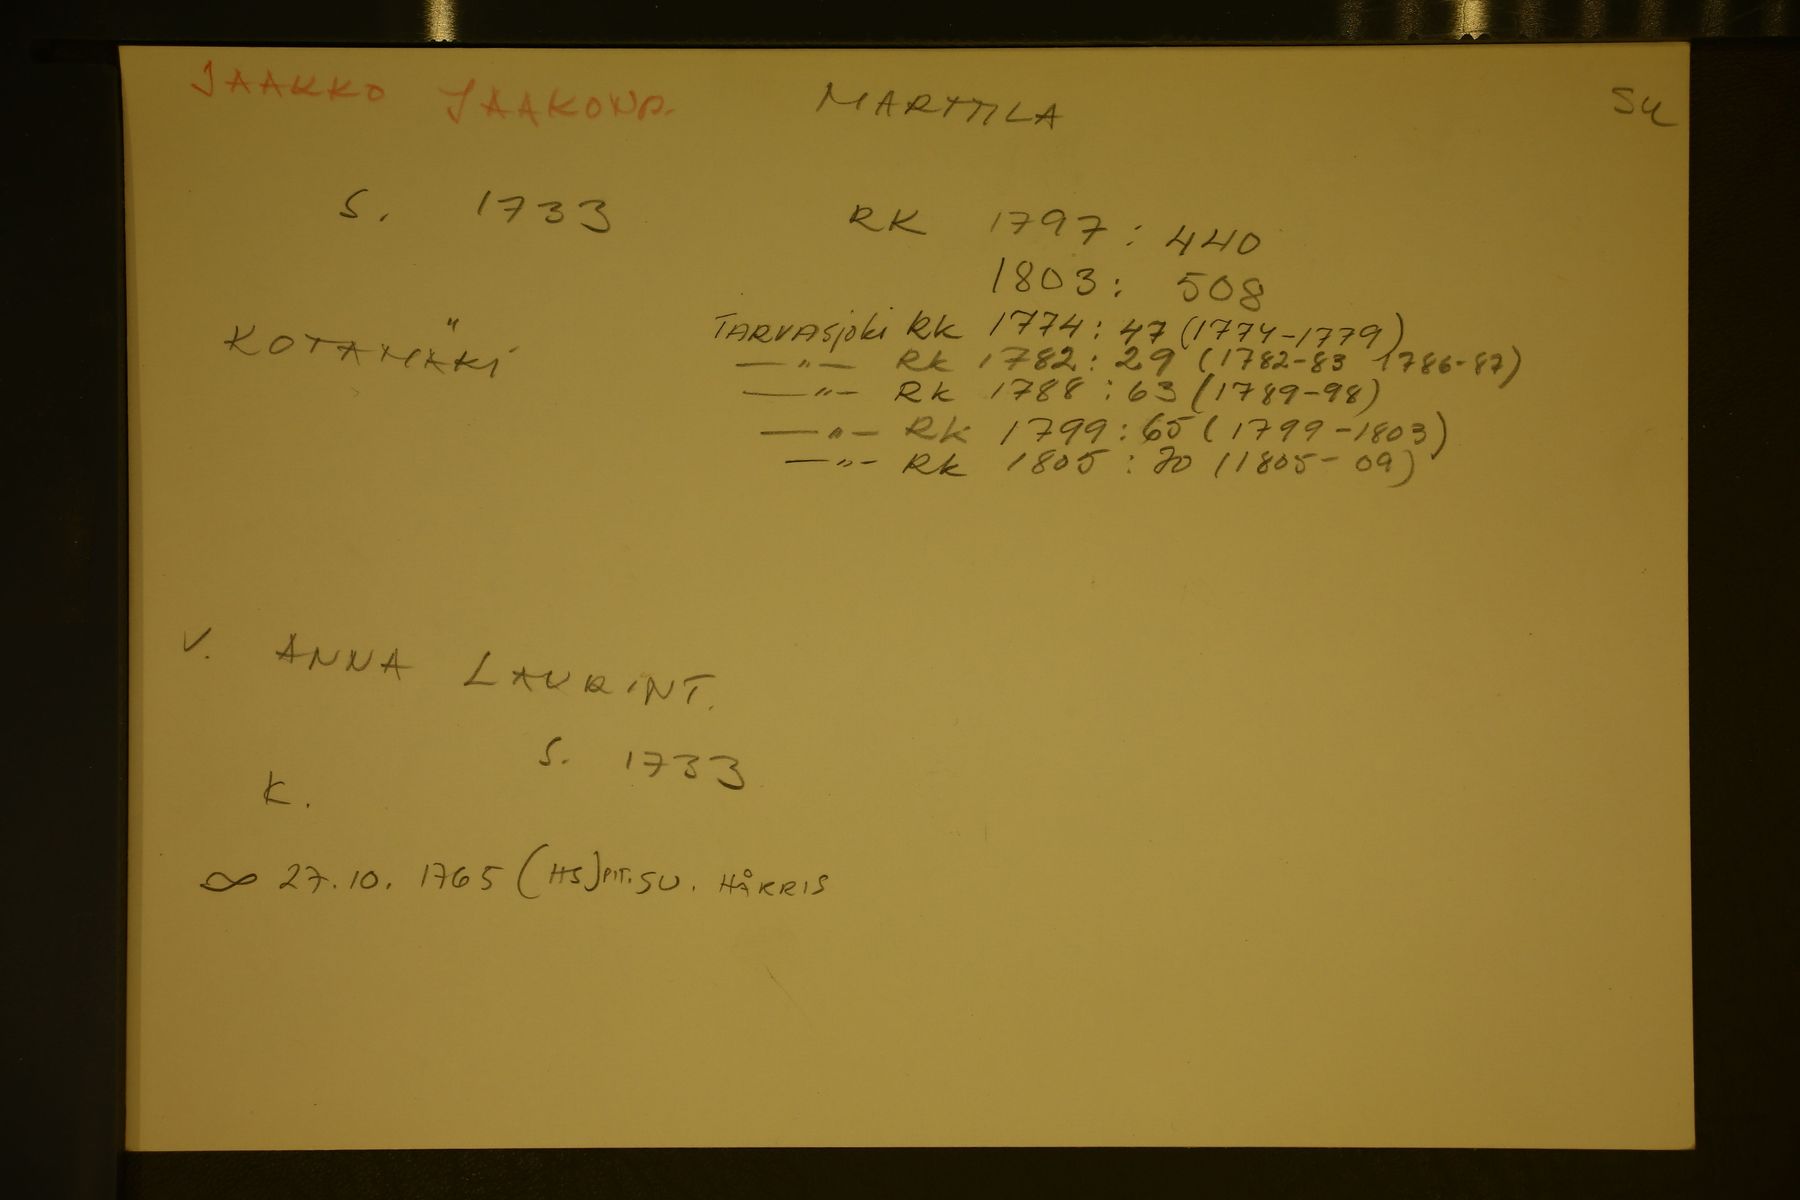 JAAKKO JAAKONP. MARTTILA SU
S. 1733
RK 1797: 440
1803: 508
KOTAMÄKI
TARVASjoki RK 1774: 47 (1774-1779)
—"— RK 1782: 29 (1782-83 1786-87)
—"— RK 1788: 63 (1789-98)
—"— RK 1799: 65 (1799-1803)
—"— RK 1805: 70 (1805-09)
V. ANNA LAURINT.
S. 1733
K.
∞ 27.10. 1765 (HS) PIT. SU. HÅKRIS